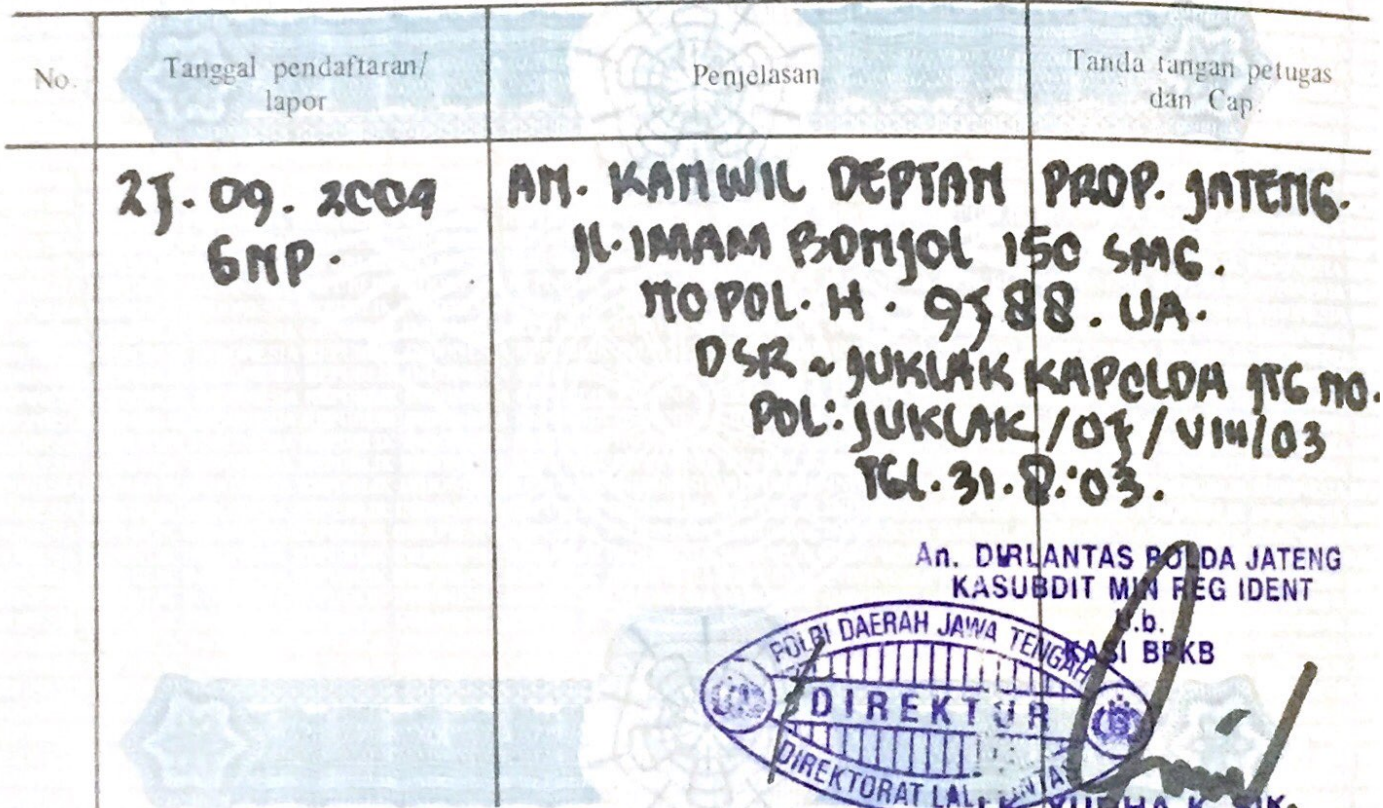 No.
Tanggal pendaftaran/
lapor
Penjelasan
Tanda tangan petugas
dan Cap.
25.09.2009
GNP.
AN. KANWIL DEPTAN PROP. JATENG.
JL. IMAM BONJOL 150 SMG.
NO POL. H. 9588. UA.
DSR ~ JUKLAK KAPOLDA JTG NO.
POL: JUKLAK/05/VIII/03
TGL. 31.8.'03.
An. DIRLANTAS POLDA JATENG
KASUBDIT MIN REG IDENT
u.b.
KASI BPKB
POLRI DAERAH JAWA TENGAH
DIREKTUR
DIREKTORAT LALU LINTAS